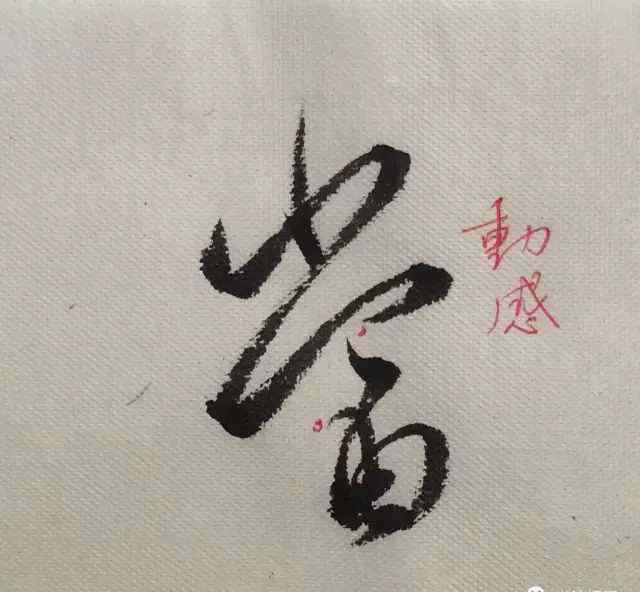 當
動感